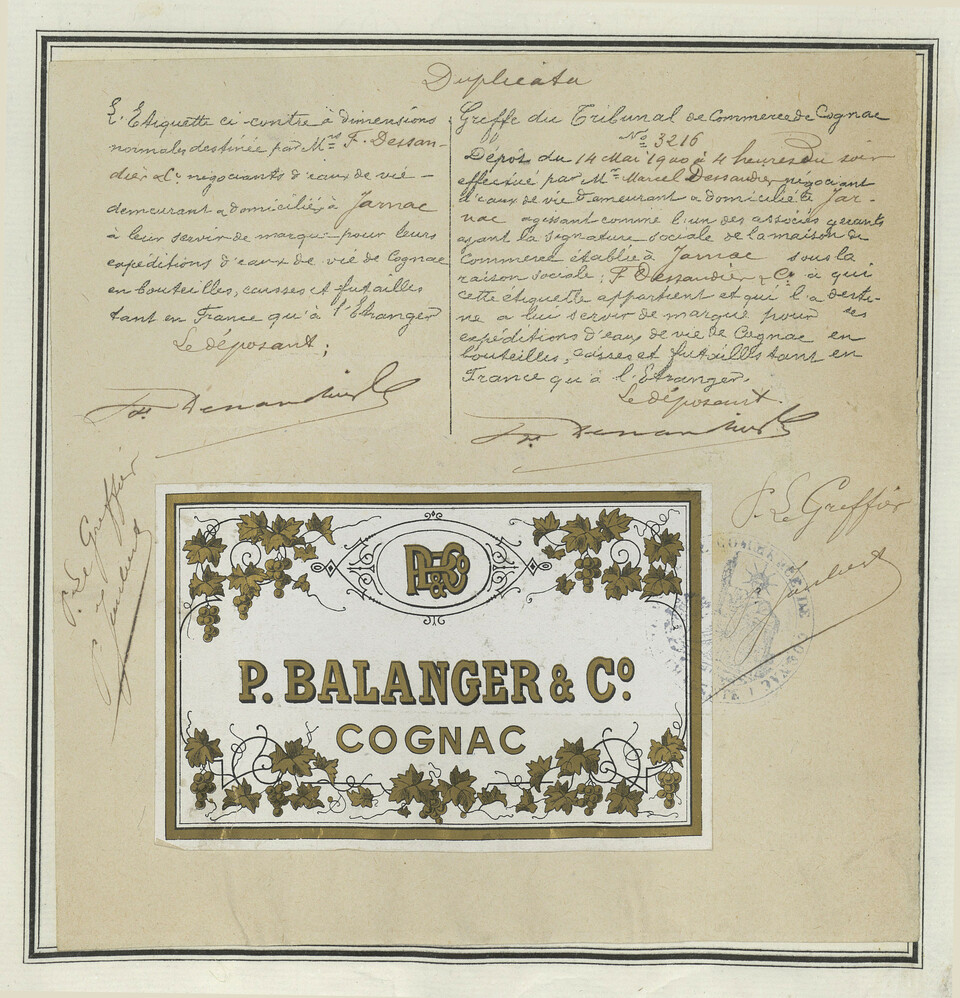 Duplicata
L'Etiquette ci-contre à dimensions
normales destinée par Mrs F. Dessan-
dier & Co négociants d'eaux de vie -
demeurant & domiciliés à Jarnac
à leur servir de marque pour leurs
expéditions d'eaux de vie de Cognac
en bouteilles, caisses et futailles
tant en France qu'à l'Etranger
Le déposant;
Fs Dessandier & Co
Greffe du Tribunal de Commerce de Cognac
No 3216
Dépôt du 14 Mai 1900 à 4 heures du soir
effectué par Mr Marcel Dessandier négociant
d'eaux de vie demeurant & domicilié à Jar-
nac agissant comme l'un des associés gérants
ayant la signature sociale de la maison de
Commerce établie à Jarnac sous la
raison sociale: F Dessandier & Co à qui
cette étiquette appartient et qui l'a desti-
né à lui servir de marque pour ses
expéditions d'eaux de vie de Cognac en
bouteilles, caisses et futailles tant en
France qu'à l'Etranger.
Le déposant.
Fs Dessandier & Co
P. Le Greffier
P. Le Greffier
COMMERCE DE COGNAC
PB & Co
P. BALANGER & Co.
COGNAC